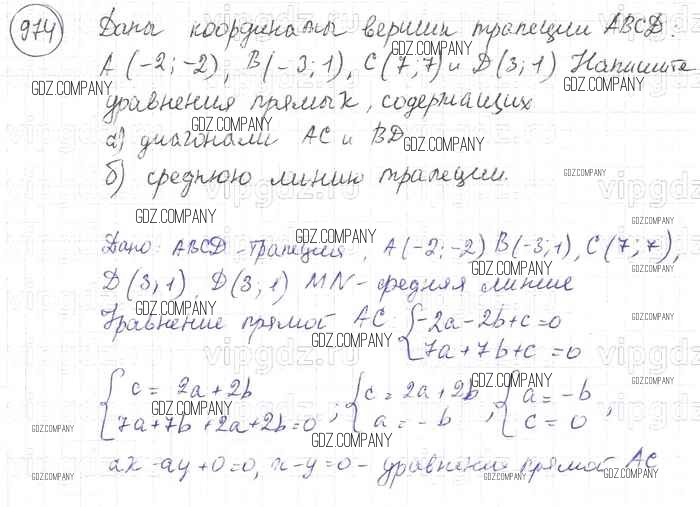 974 Даны координаты вершин трапеции ABCD:
A(-2;-2), B(-3;1), C(7;7) и D(3;1) Напишите
уравнения прямых, содержащих
а) диагонали AC и BD
б) среднюю линию трапеции.
Дано: ABCD - трапеция, A(-2;-2) B(-3;1), C(7;7),
D(3;1) D(3;1) MN - средняя линия
Уравнение прямой AC: { -2a-2b+c=0
7a+7b+c=0
{ c=2a+2b
7a+7b+2a+2b=0 ; { c=2a+2b
a=-b ; { a=-b
c=0 ,
ax-ay+0=0, x-y=0 - уравнение прямой AC